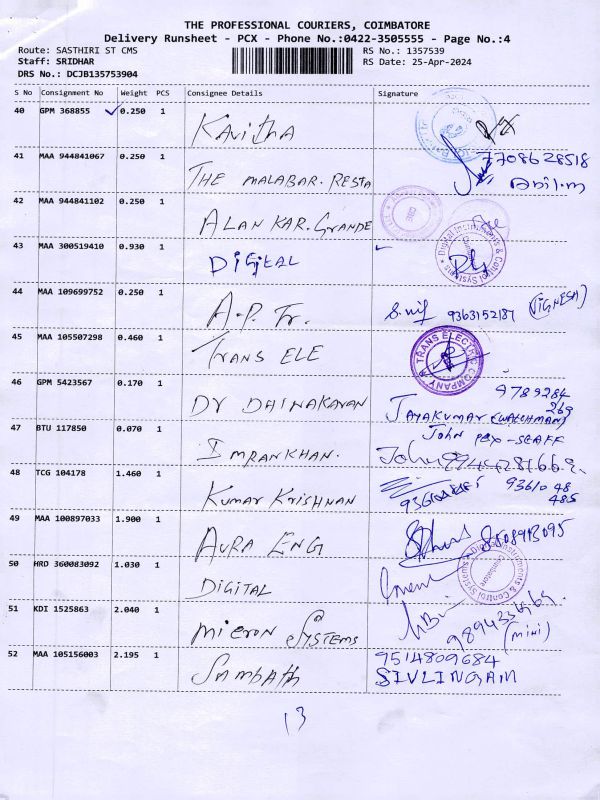 THE PROFESSIONAL COURIERS, COIMBATORE
Delivery Runsheet - PCX - Phone No.:0422-3505555 - Page No.:4
Route: SASTHIRI ST CMS RS No.: 1357539
Staff: SRIDHAR RS Date: 25-Apr-2024
DRS No.: DCJB135753904
S No Consignment No Weight PCS Consignee Details Signature
40 GPM 368855 0.250 1 Kavitha
41 MAA 944841067 0.250 1 THE MALABAR. RESTA 7708628518
42 MAA 944841102 0.250 1 ALANKAR. GRANDE
43 MAA 300519410 0.930 1 DIGITAL Digital Instruments & Control Systems
44 MAA 109699752 0.250 1 A.P. Tr. 9363152187 (VIGNESH)
45 MAA 105507298 0.460 1 TRANS ELE TRANS ELECTRIC COMPANY
46 GPM 5423567 0.170 1 DR DHINAKARAN 9789284 269
JAYAKUMAR (WATCHMAN)
47 BTU 117850 0.070 1 IMRANKHAN. John PCX-STAFF
John 9945281669.
48 TCG 104178 1.460 1 KUMAR KRISHNAN 93610 48 485
49 MAA 100897033 1.900 1 AURA ENG
50 HRD 360083092 1.030 1 DIGITAL Digital Instruments & Control Systems Coimbatore
51 KDI 1525863 2.040 1 MICRON SYSTEMS (mini)
52 MAA 105156003 2.195 1 Sambath 9514809684
SIVLINGAM
13